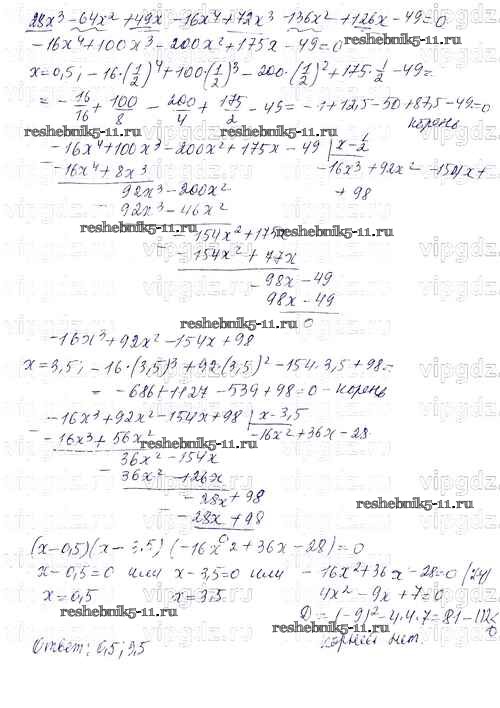 28x³-64x²+49x-16x⁴+72x³-136x²+126x-49=0
-16x⁴+100x³-200x²+175x-49=0
x=0,5; -16·(1/2)⁴+100·(1/2)³-200·(1/2)²+175·1/2-49=
= -16/16+100/8-200/4+175/2-49=-1+12,5-50+87,5-49=0
корень
reshebnik5-11.ru reshebnik5-11.ru
-16x⁴+100x³-200x²+175x-49 | x-1/2
-16x⁴+8x³ -16x³+92x²-154x+
92x³-200x² +98
92x³-46x²
-154x²+175x
-154x²+77x
98x-49
98x-49
0
reshebnik5-11.ru
-16x³+92x²-154x+98
x=3,5; -16·(3,5)³+92·(3,5)²-154·3,5+98=
= -686+1127-539+98=0-корень
-16x³+92x²-154x+98 | x-3,5
-16x³+56x² -16x²+36x-28
reshebnik5-11.ru
36x²-154x
36x²-126x
-28x+98
-28x+98
reshebnik5-11.ru
0
(x-0,5)(x-3,5)(-16x²+36x-28)=0
x-0,5=0 или x-3,5=0 или -16x²+36x-28=0
x=0,5 x=3,5 4x²-9x+7=0
D=(-9)²-4·4·7=81-112<0
reshebnik5-11.ru
корней нет.
Ответ: 0,5; 3,5
reshebnik5-11.ru
vipgdz.ru